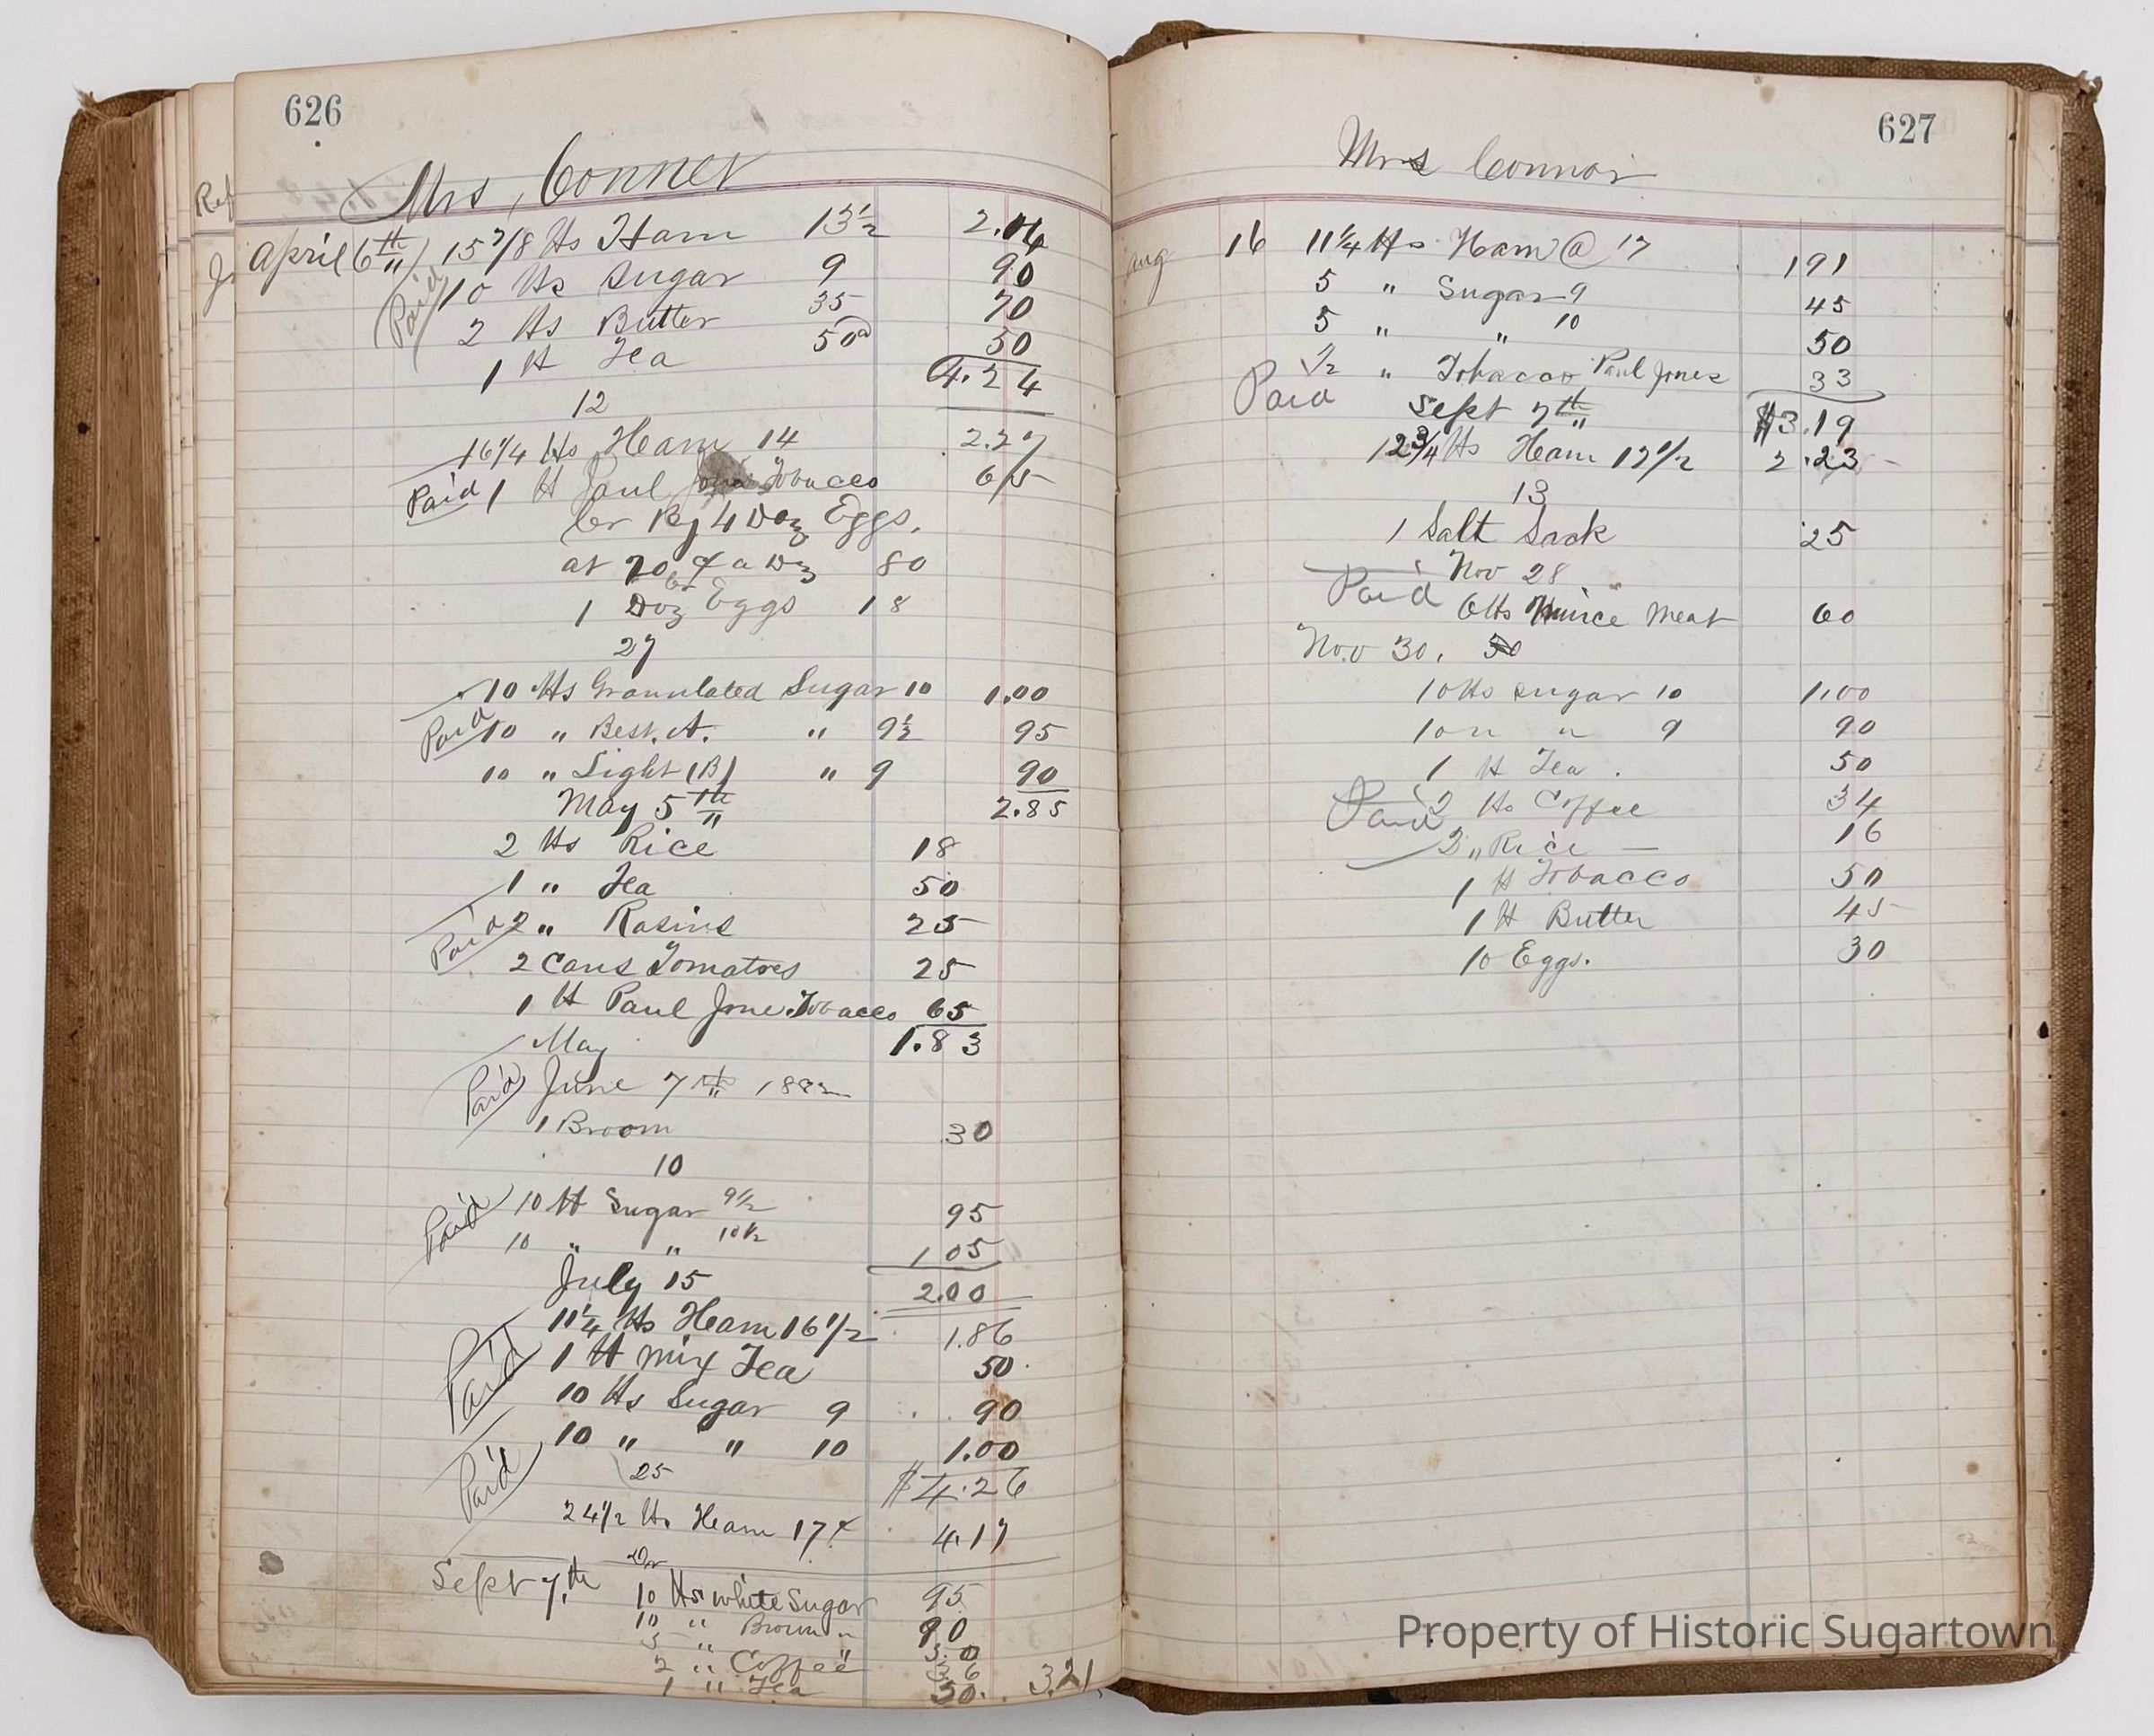 626
Mrs, Conner
April 6th 15 7/8 lbs Ham 13 1/2 2.14
Paid 10 lbs Sugar 9 90
2 lbs Butter 35 70
1 lb Tea 50 50
4.24
12
16 1/4 lbs Ham 14 2.27
Paid 1 lb Paul Jones Tobacco 65
Cr By 4 Doz Eggs,
at 20 ¢ a Dz 80
Cr
1 Doz Eggs 18
27
10 lbs Granulated Sugar 10 1.00
Paid 10 " Best. A. " 9 1/2 95
10 " Light (B) " 9 90
May 5th 2.85
2 lbs Rice 18
1 " Tea 50
Paid 2 " Rasins 25
2 Cans Tomatoes 25
1 lb Paul Jone Tobacco 65
May 1.83
Paid June 7th 1892
1 Broom 30
10
Paid 10 lb Sugar 9 1/2 95
10 " " 10 1/2 1 05
July 15 2.00
11 1/4 lbs Ham 16 1/2 1.86
Paid 1 lb mix Tea 50
10 lbs Sugar 9 90
10 " " 10 1.00
25 $4.26
Paid 24 1/2 lbs Ham 17 ¢ 4.17
Sept 7.th 10 lbs white Sugar 95
10 " Brown " 90
5 " 50
2 " Coffee 36
1 " Tea 50. 3.21
627
Mrs Connor
Aug 16 11 1/4 lbs Ham @ 17 191
5 " Sugar 9 45
5 " " 10 50
1/2 " Tobacco Paul Jones 33
Paid Sept 7th $3.19
12 3/4 lbs Ham 17 1/2 2.23
13
1 Salt Sack 25
Nov 28
Paid 6 lbs Mince Meat 60
Nov 30, 50
10 lbs sugar 10 1.00
10 " " 9 90
1 lb Tea . 50
Paid 2 lbs Coffee 34
2 " Rice — 16
1 lb Tobacco 50
1 lb Butter 45
10 Eggs. 30
Property of Historic Sugartown